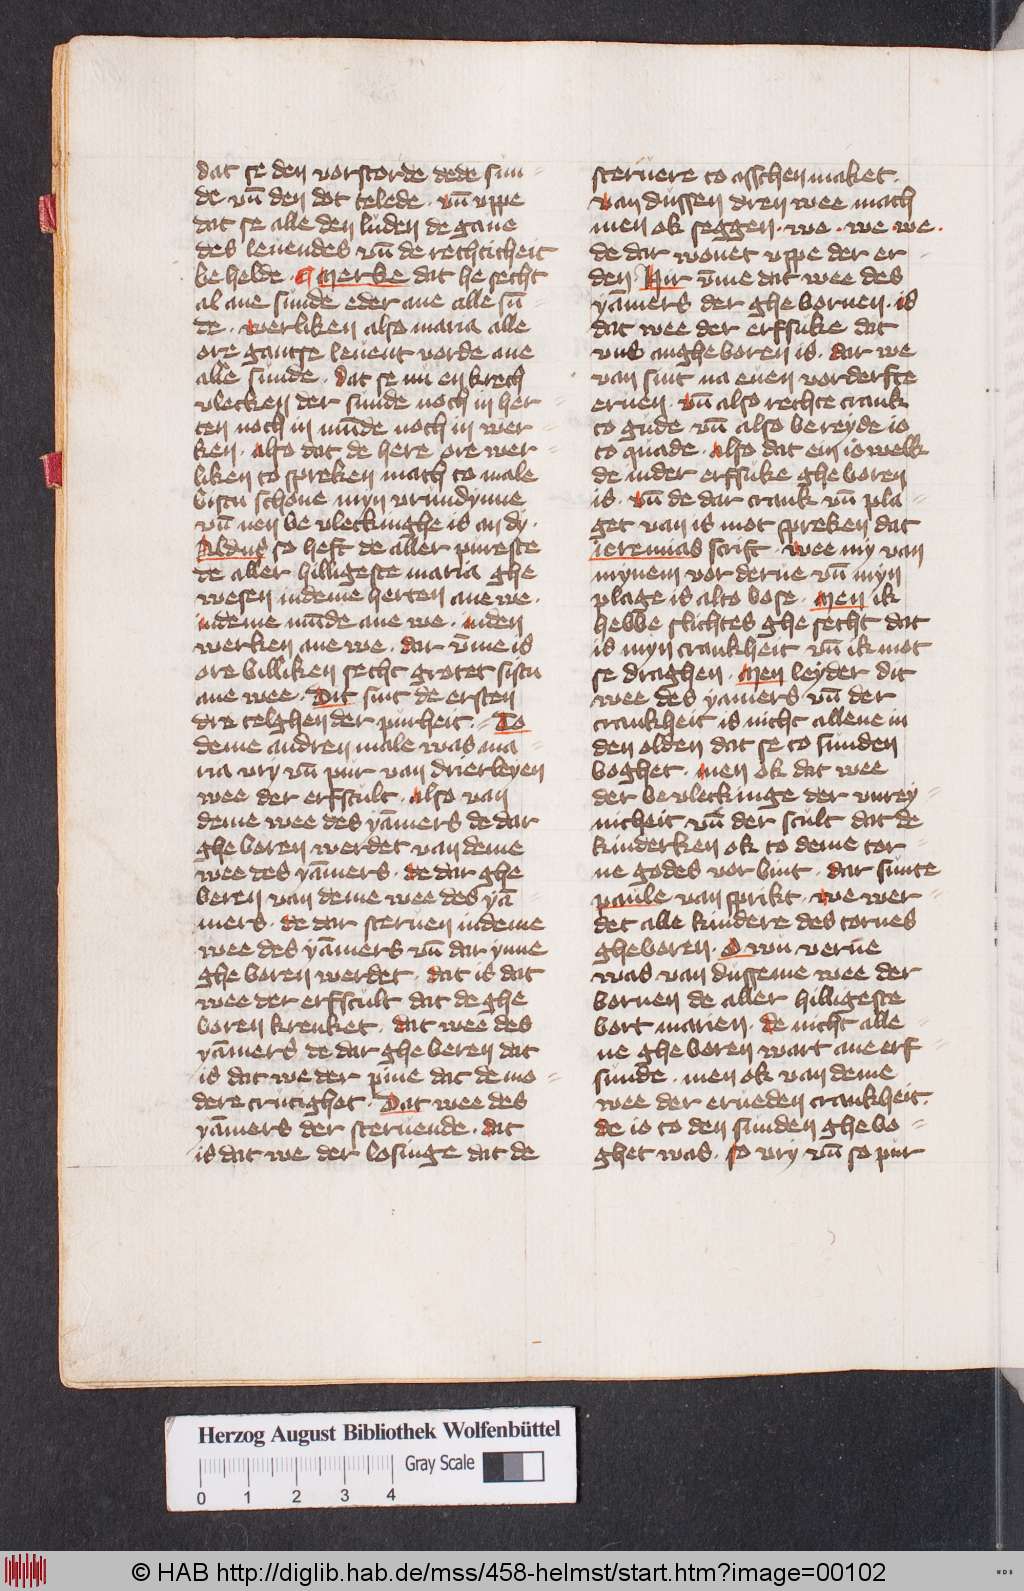 dat se den vorstorde dede sun-
de vn̄ den dot telede · vn̄ vppe
dat se alle den luden de gaue
des leuendes vn̄ de rechticheit
be helde · ¶ Merke dat he secht
al ane sunde eder ane alle sū-
de · werliken also maria alle
ore gantse leuent vorde ane
alle sunde · dat se nü en krech
vlecken der sunde noch in her-
ten noch in mūde noch in wer-
ken · also dat de here ore wer-
liken to spreken mach to male
bistu schone myn vrundynne
vn̄ nen be vleckinghe is an dy ·
Aldus so heft de aller pureste
de aller hilligeste maria ghe
wesen indeme herten ane we ·
indeme mūde ane we · inden
werken ane we · dar v̄me is
ore billiken secht grotet sistu
ane wee · Dit sint de ersten
dre telghen der purheit - To
deme andren male was ma-
ria vry vn̄ pur van drierleyen
wee der erfscult · also van
deme wee des yāmers de dar
ghe boren werdet van deme
wee des yāmers · de dar ghe
beren van deme wee des yā-
mers · de dar steruen indeme
wee des yāmers vn̄ dar ynne
ghe boren werdet · dat is dat
wee der erfscult dat de ghe
boren krenket · dat wee des
yāmers de dar ghe beren dat
is dat we der pine dat de mo-
dere crucighet · Dat wee des
yāmers der steruende · dat
is dat we der losinge dat de
steruere to asschen maket ·
van dussen dren wee mach
men ok seggen · we · we we ·
de dar wonet vppe der er-
den · Hir v̄me dat wee des
yāmers der ghe bornen · is
dat wee der erfsuke dat
vns anghe boren is · dar we
van sint na euen vorderfte
eruen · vn̄ also rechte crank
to gude vn̄ also bereyde io
to quade · also dat ein io welk
de inder erfsuke ghe boren
is · vn̄ de dar crank vn̄ pla-
get van is mot spreken dat
ieremias scrift · wee my van
mynem vor derue vn̄ myn
plage is alto bose · Men ik
hebbe slichtes ghe secht dat
is myn crankheit vn̄ ik mot
se draghen · Men leyder dit
wee des yamers vn̄ der
crankheit is nicht allene in
den olden dat se to sunden
boghet · men ok dat wee
der be vleckinge der vnrey-
nicheit vn̄ der scult dat de
kinderken ok to deme tor-
ne godes vor bint · dar sunte
paule van sprikt · we wer-
det alle kindere des tornes
gheboren · O wu verne
was van dusseme wee der
bornen de aller hilligeste
bort marien · de nicht alle-
ne ghe boren wart ane erf-
sunde · men ok van deme
wee der erueden crankheit ·
de io to den sunden ghe bo-
ghet was · so vry vn̄ so pur
Herzog August Bibliothek Wolfenbüttel
Gray Scale
0 1 2 3 4
© HAB http://diglib.hab.de/mss/458-helmst/start.htm?image=00102